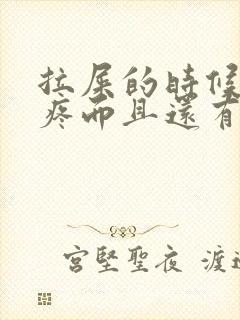 拉屎的時候
疼而且還有
宮堅聖夜 渡邊